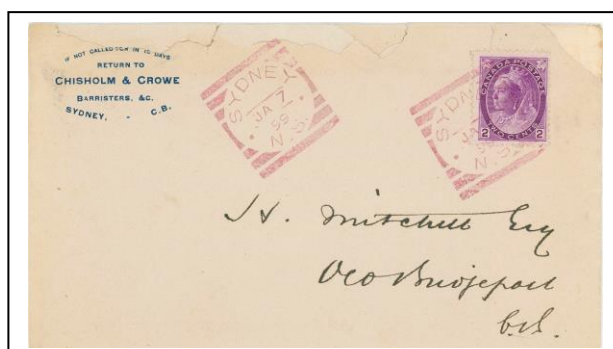 IF NOT CALLED FOR IN 10 DAYS
RETURN TO
CHISHOLM & CROWE
BARRISTERS, &C.
SYDNEY, - C.B.
SYDNEY
JA 7
99
N.S.
SYDNEY
JA
99
N.S.
CANADA POSTAGE
2 TWO CENTS 2
H. Mitchell Esq
Old Bridgeport
C.B.